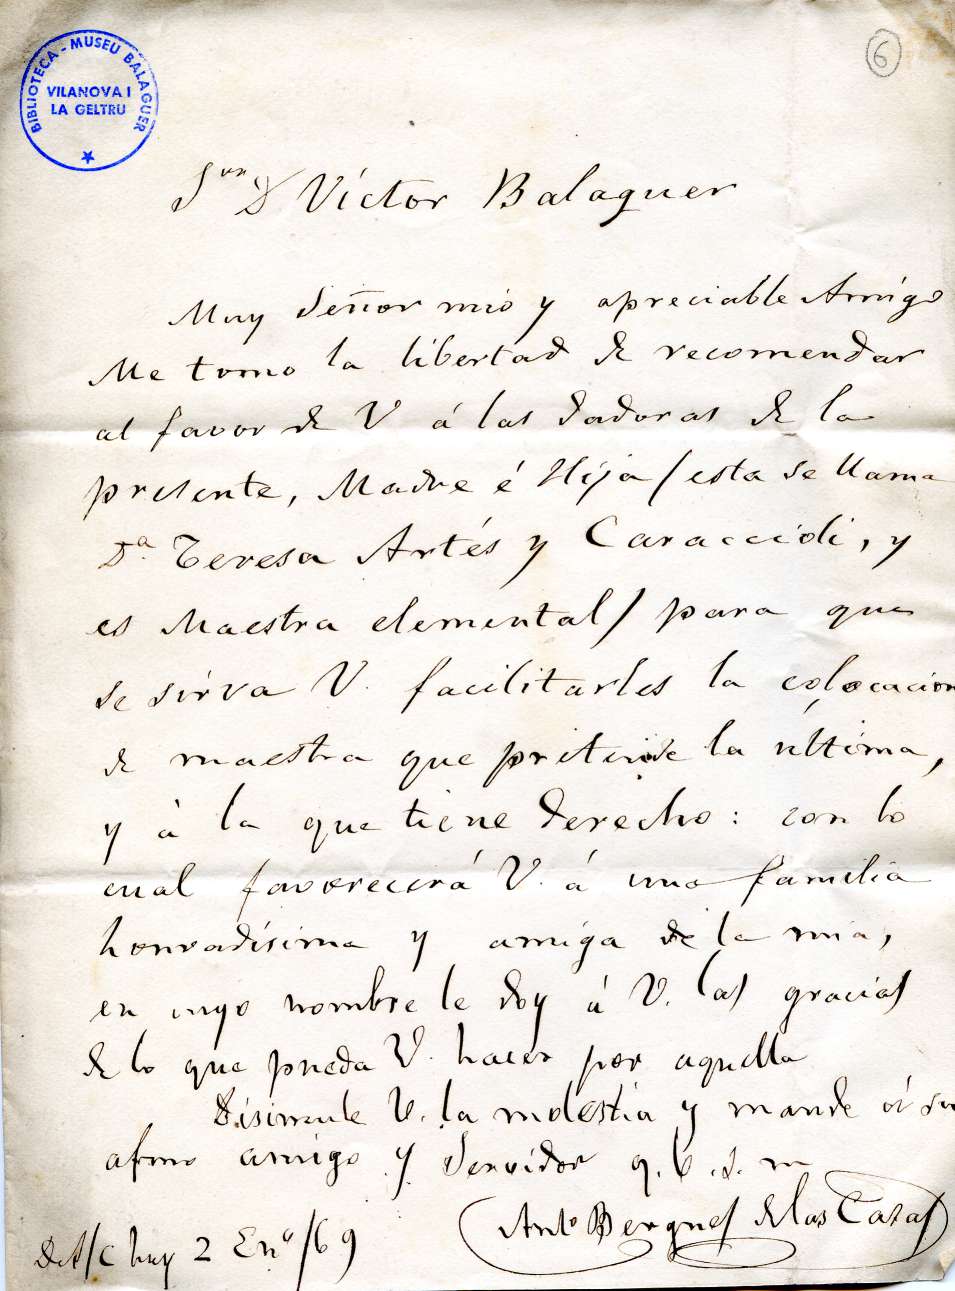 BIBLIOTECA - MUSEU BALAGUER
VILANOVA I
LA GELTRU
6
Sr. D. Víctor Balaguer
Muy Señor mio y apreciable Amigo
Me tomo la libertad de recomendar
al favor de V á las dadoras de la
presente, Madre é Hija (esta se llama
Dª Teresa Artés y Caraccioli, y
es Maestra elemental) para que
se sirva V. facilitarles la colocacion
de maestra que pretende la última,
y á la que tiene derecho: con lo
cual favorecerá V. á una familia
honradísima y amiga de la mia,
en cuyo nombre le doy á V. las gracias
de lo que pueda V. hacer por aquella
Disimule V. la molestia y mande á su
afmo amigo y Servidor q. b. s. m
Antº Bergnes de las Casas
hoy 2 Enº/69